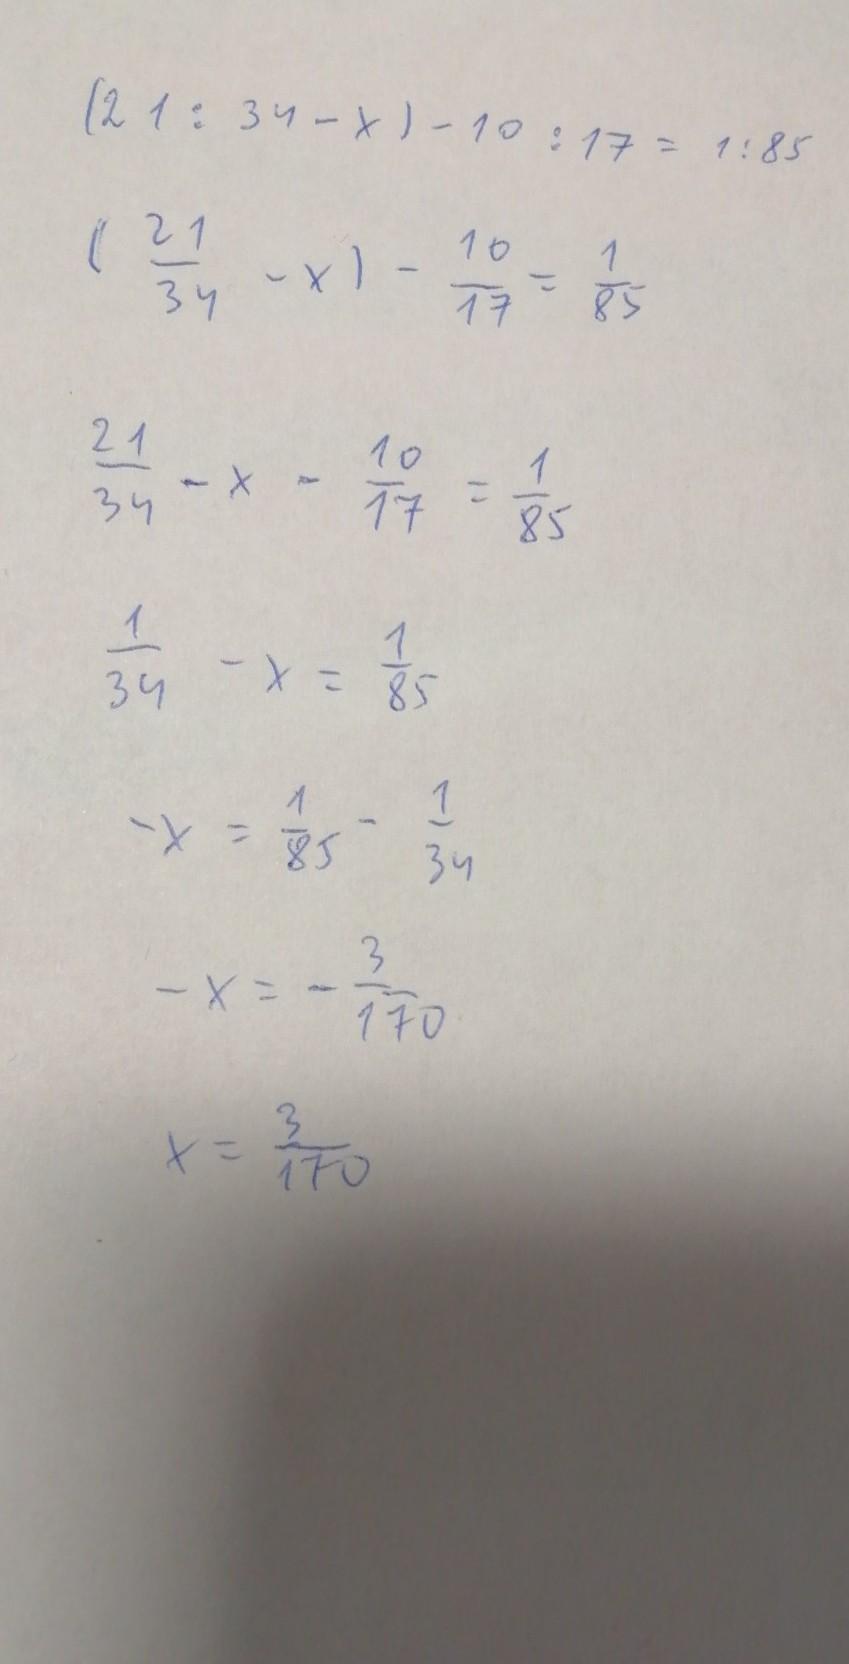 (21 : 34 - x) - 10 : 17 = 1 : 85
(21/34 - x) - 10/17 = 1/85
21/34 - x - 10/17 = 1/85
1/34 - x = 1/85
-x = 1/85 - 1/34
-x = - 3/170
x = 3/170